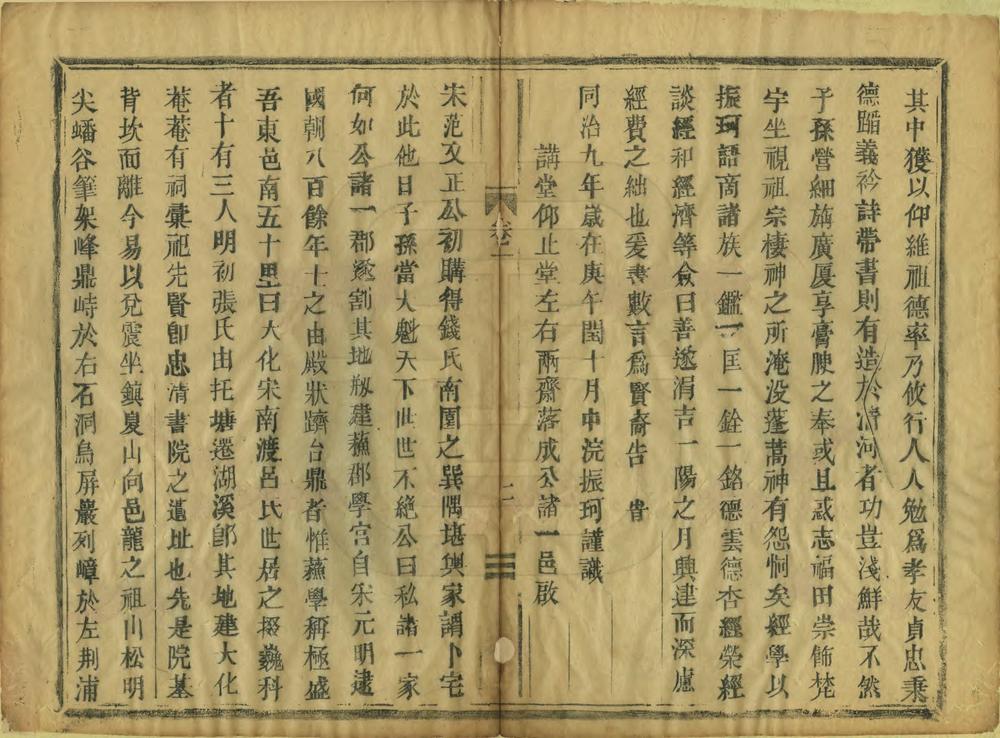 其中獲以仰維祖德率乃攸行人人勉爲孝友貞忠秉
德蹈義衿詩帶書則有造於清河者功豈淺鮮哉不然
子孫營細旃廣厦享膏腴之奉或且惑志福田崇飾梵
宇坐視祖宗棲神之所淹没蓬蒿神有怨恫矣經學以
振珂語商諸族一鑑一匡一銓一銘德雲德杏經榮經
談經和經濟等僉曰善遂涓吉一陽之月興建而深慮
經費之絀也爰書數言爲賢裔告 旹
同治九年歲在庚午閏十月中浣振珂謹識
講堂仰止堂左右兩齋落成公諸一邑啟
宋范文正公初購得錢氏南園之巽隅堪輿家謂卜宅
於此他日子孫當大魁天下世世不絶公曰私諸一家
何如公諸一郡遂割其地剏建蘇郡學宮自宋元明逮
國朝八百餘年士之由殿狀躋台鼎者惟蘇學稱極盛
吾東邑南五十里曰大化宋南渡呂氏世居之掇巍科
者十有三人明初張氏由托塘遷湖溪即其地建大化
菴菴有祠彙祀先賢卽忠清書院之遺址也先是院基
背坎而離今易以兌震坐鎮夏山向邑龍之祖山松明
尖蟠谷筆架峰鼎峙於右石洞鳥屏巖列嶂於左荆浦
卷二
二